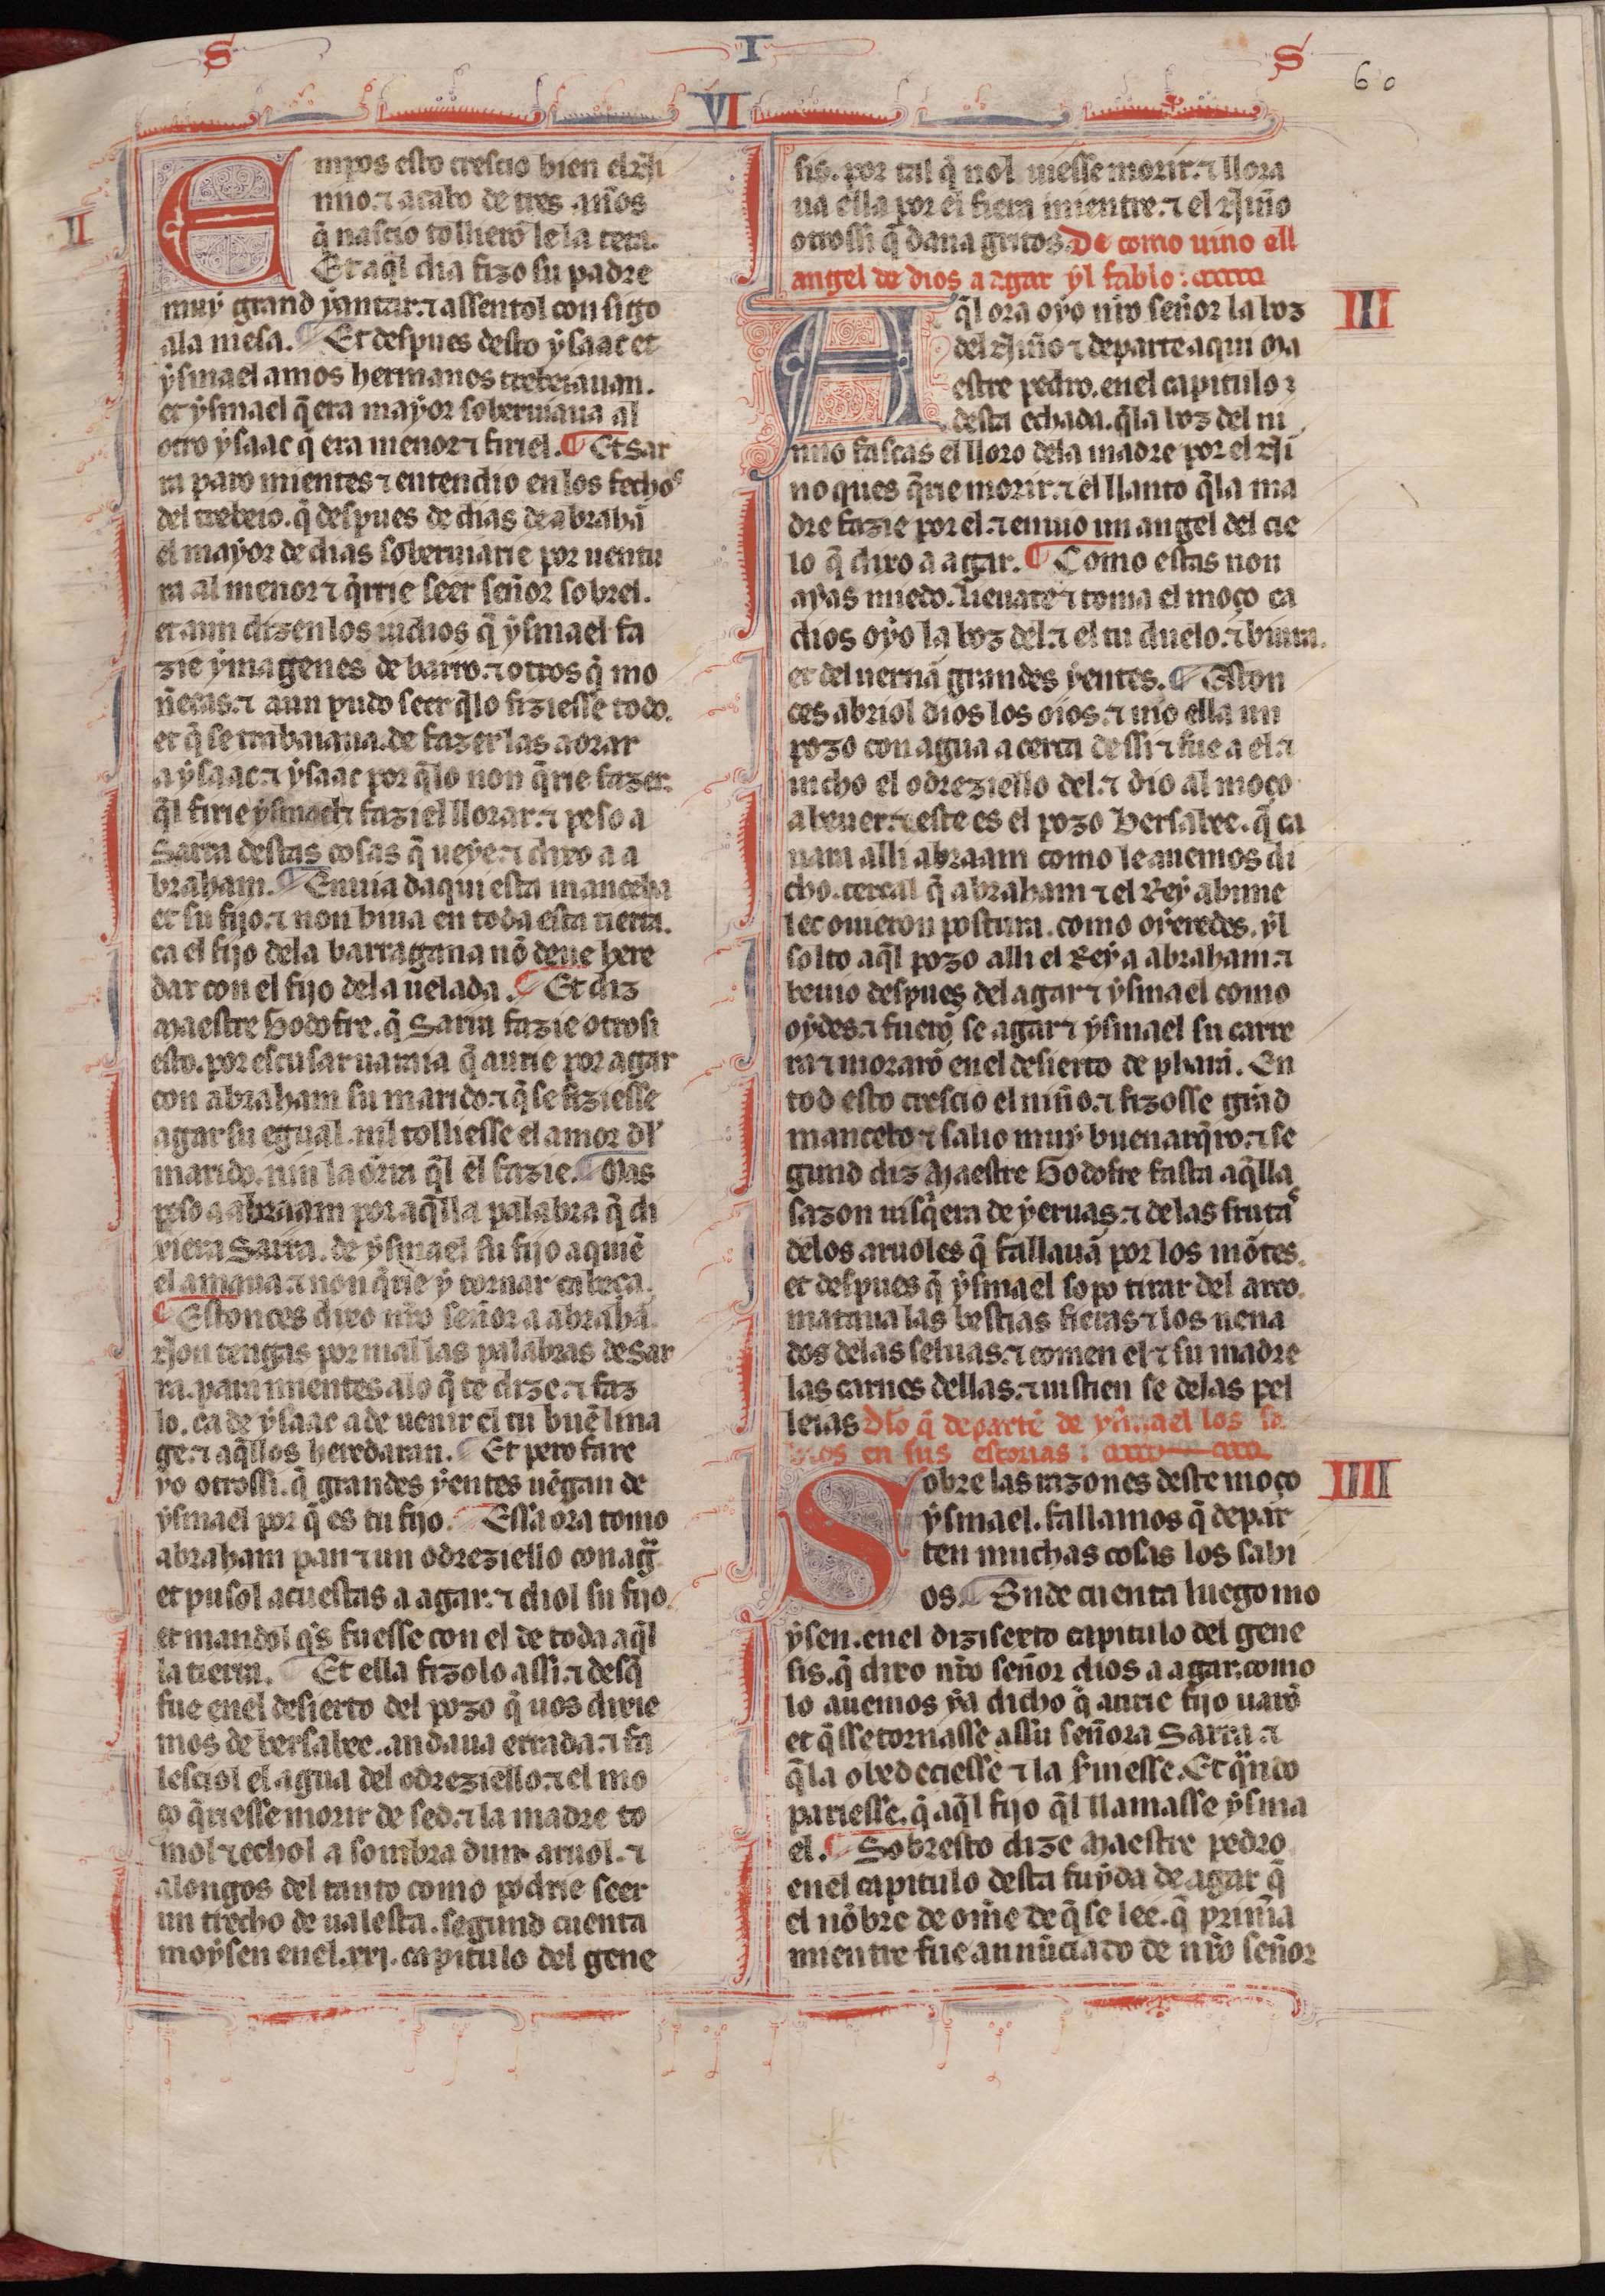 S I S
60
VI
II
Empos esto crescio bien el ni
nno. ⁊ acabo de tres años
q̃ nascio tollierõ le la teta.
Et aq̃l dia fizo su padre
muẏ grand ẏantar. ⁊ assentol con sigo
ala mesa. ¶ Et despues desto ẏsaac et
ẏsmael amos hermanos trebeiauan.
et ẏsmael q̃ era maẏor soberuiaua al
otro ẏsaac q̃ era menor ⁊ firiel. ¶ Et Sar
ra paro mientes ⁊ entendio en los fechos
del trebeio. q̃ despues de dias de abrahã
el maẏor de dias soberuiarie por uentu
ra al menor ⁊ q̃rrie seer señor sobrel.
et aun dizen los iudios q̃ ẏsmael fa
zie ẏmagenes de barro. ⁊ otros q̃ mo
ñecas. ⁊ aun pudo seer q̃lo fiziesse todo.
et q̃ se trabaiaua. de fazer las aorar
a ẏsaac. ⁊ ẏsaac por q̃lo non q̃rie fazer.
q̃l firie ẏsmael ⁊ faziel llorar. ⁊ peso a
Sarra destas cosas q̃ ueẏe. ⁊ dixo a a
braham. ¶ Enuia daqui esta manceba
et su fijo. ⁊ non biua en toda esta tierra.
ca el fijo dela barragana nõ deue here
dar con el fijo dela uelada. ¶ Et diz
Maestre Godofre. q̃ Sarra fazie otrosi
esto. por escusar uaraia q̃ aurie por agar
con abraham su marido. ⁊ q̃ se fiziesse
agar su egual. nil tolliesse el amor dl
marido. nin la onrra q̃l el fazie. ¶ Mas
peso a abraam por aq̃lla palabra q̃ di
xiera Sarra. de ẏsmael su fijo a quiẽ
el amaua. ⁊ non q̃rie ẏ tornar cabeça.
¶ Estonces dixo nro señor a abrahã.
Non tengas por mal las palabras de Sar
ra. para mientes alo q̃ te dize. ⁊ faz
lo. ca de ẏsaac a de uenir el tu buẽ lina
ge. ⁊ aq̃llos heredaran. ¶ Et pero fare
ẏo otrossi. q̃ grandes ẏentes uẽgan de
ẏsmael por q̃ es tu fijo. ¶ Essa ora tomo
abraham pan ⁊ un odreziello con agũ
et pusol acuestas a agar. ⁊ diol su fijo.
et mandol q̃s fuesse con el de toda aq̃l
la tierra. ¶ Et ella fizolo assi. ⁊ desq̃
fue enel desierto del pozo q̃ uos dixie
mos de bersabee. andaua errada. ⁊ fa
lesciol el agua del odreziello. ⁊ el mo
ço q̃riesse morir de sed. ⁊ la madre to
mol ⁊ echol a sombra dun aruol. ⁊
alongos del tanto como podrie seer
un trecho de ualesta. segund cuenta
moẏsen enel .xxj. capitulo del gene
sis. por tal q̃ nol uiesse morir. ⁊ llora
ua ella por el fiera mientre. ⁊ el Niño
otrossi q̃ daua gritos. De como uino ell
angel de dios a agar ẏl fablo:
III
Aq̃l ora oẏo nro señor la boz
del Niño ⁊ departe aqui Ma
estre pedro. enel capitulo
desta echada. q̃la boz del ni
nno fascas el lloro dela madre por el Ni
no ques q̃rie morir. ⁊ el llanto q̃la ma
dre fazie por el. ⁊ enuio un angel del cie
lo q̃ dixo a agar. ¶ Como estas non
aẏas miedo. lieuate ⁊ toma el moço ca
dios oẏo la boz del. ⁊ el tu duelo. ⁊ biura.
et del uernã grandes ẏentes. ¶ Eston
ces abriol dios los oios. ⁊ uio ella un
pozo con agua a cerca dessi ⁊ fue a el. ⁊
incho el odreziello del. ⁊ dio al moço
a beuer. ⁊ este es el pozo Bersabee. q̃ ca
uara alli abraam como le auemos di
cho. cercal q̃ abraham ⁊ el Reẏ abime
lec ouieron postura. como oẏeredes. ẏl
solto aq̃l pozo alli el Reẏ a abraham. ⁊
beuio despues del agar ⁊ ẏsmael como
oẏdes. ⁊ fuerõ se agar ⁊ ẏsmael su carre
ra ⁊ morarõ enel desierto de pharã. En
tod esto crescio el niño. ⁊ fizosse grãd
mancebo ⁊ salio muẏ buen arq̃ro. ⁊ se
gund diz Maestre Godofre fasta aq̃lla
sazon uisq̃era de ẏeruas. ⁊ delas frutas
delos aruoles q̃ fallauã por los mõtes.
et despues q̃ ẏsmael sopo tirar del arco.
mataua las bestias fieras ⁊ los uena
dos delas seluas. ⁊ comien el ⁊ su madre
las carnes dellas. ⁊ uistien se delas pel
leias Dlo q̃ departẽ de ẏsmael los sa
bios en sus estorias:
IIII
Sobre las razones deste moço
ẏsmael. fallamos q̃ depar
ten muchas cosas los sabi
os. ¶ Onde cuenta luego mo
ẏsen. enel diziserto capitulo del gene
sis. q̃ dixo nro señor dios a agar. como
lo auemos ẏa dicho q̃ aurie fijo uarõ
et q̃sse tornasse assu señora Sarra ⁊
q̃la obedeciesse ⁊ la siruiesse. Et q̃ndo
pariesse. q̃ aq̃l fijo q̃l llamasse ẏsma
el. ¶ Sobresto dize Maestre pedro
enel capitulo desta fuẏda de agar q̃
el nõbre de omẽ de q̃ se lee. q̃ primera
mientre fue annũciado de nro señor